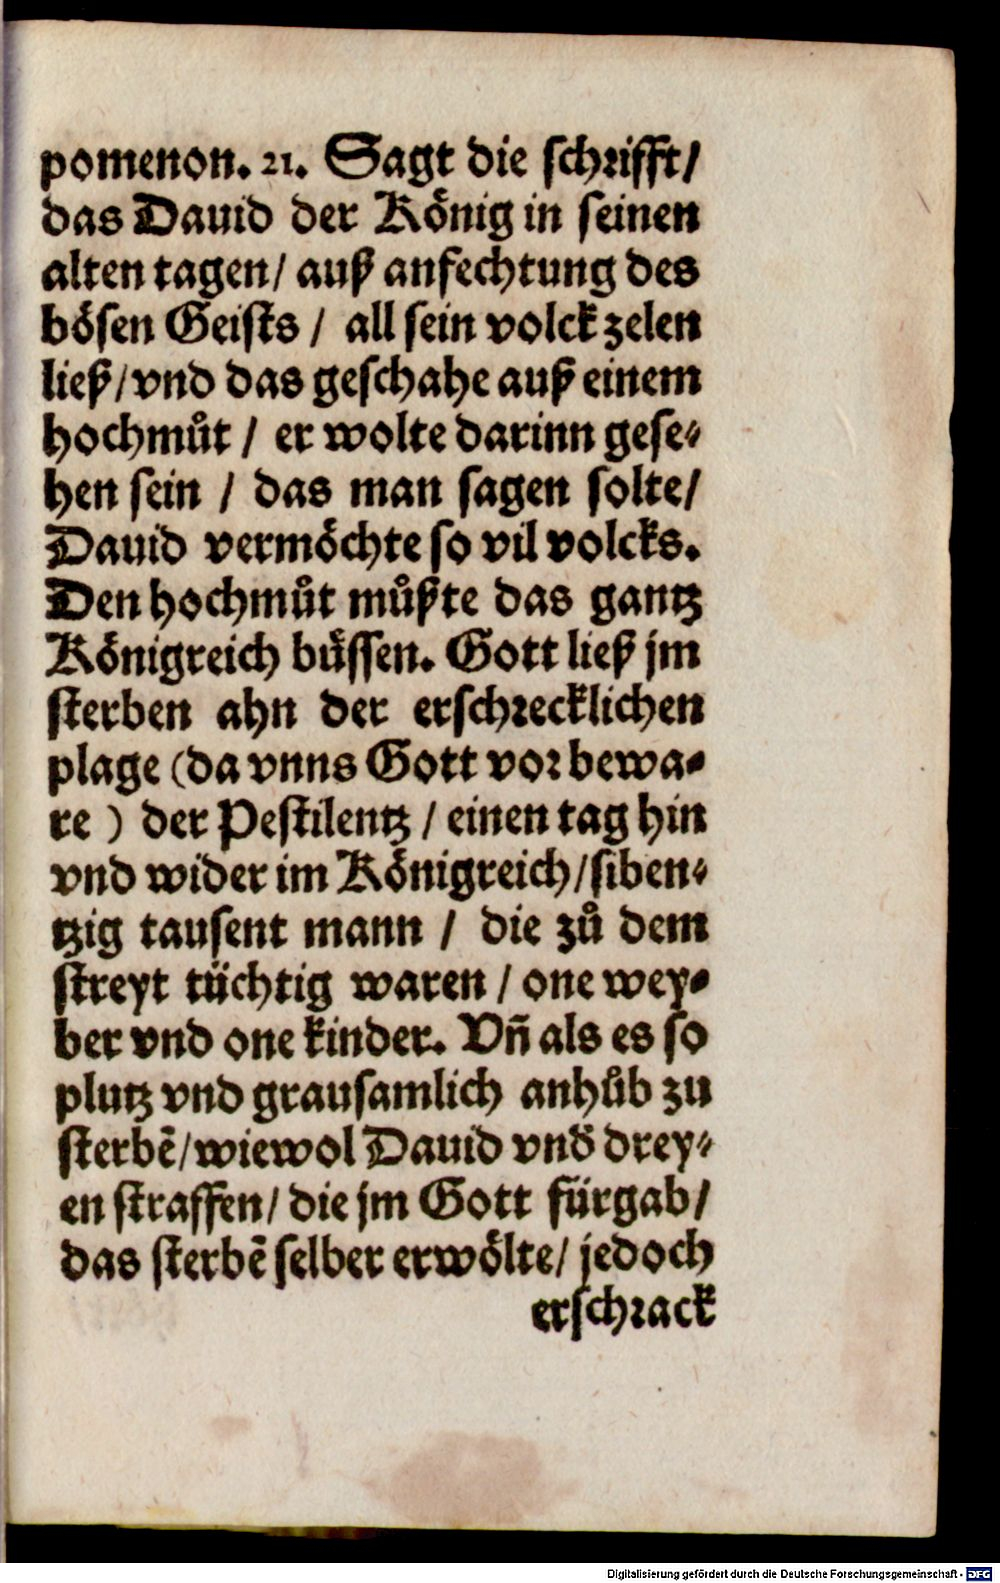 pomenon. 21. Sagt die schrifft/
das Dauid der König in seinen
alten tagen/ auß anfechtung des
bösen Geists / all sein volck zelen
ließ/ vnd das geschahe auß einem
hochmůt / er wolte darinn gese⸗
hen sein / das man sagen solte/
Dauid vermöchte so vil volcks.
Den hochmůt můßte das gantz
Königreich bůssen. Gott ließ jm
sterben ahn der erschrecklichen
plage (da vnns Gott vor bewa⸗
re ) der Pestilentz / einen tag hin
vnd wider im Königreich/ siben⸗
tzig tausent mann / die zů dem
streyt tüchtig waren / one wey⸗
ber vnd one kinder. Vñ als es so
plutz vnd grausamlich anhůb zu
sterbẽ/ wiewol Dauid vnd̃ drey⸗
en straffen/ die jm Gott fürgab/
das sterbẽ selber erwölte/ jedoch
erschrack
Digitalisierung gefördert durch die Deutsche Forschungsgemeinschaft - DFG